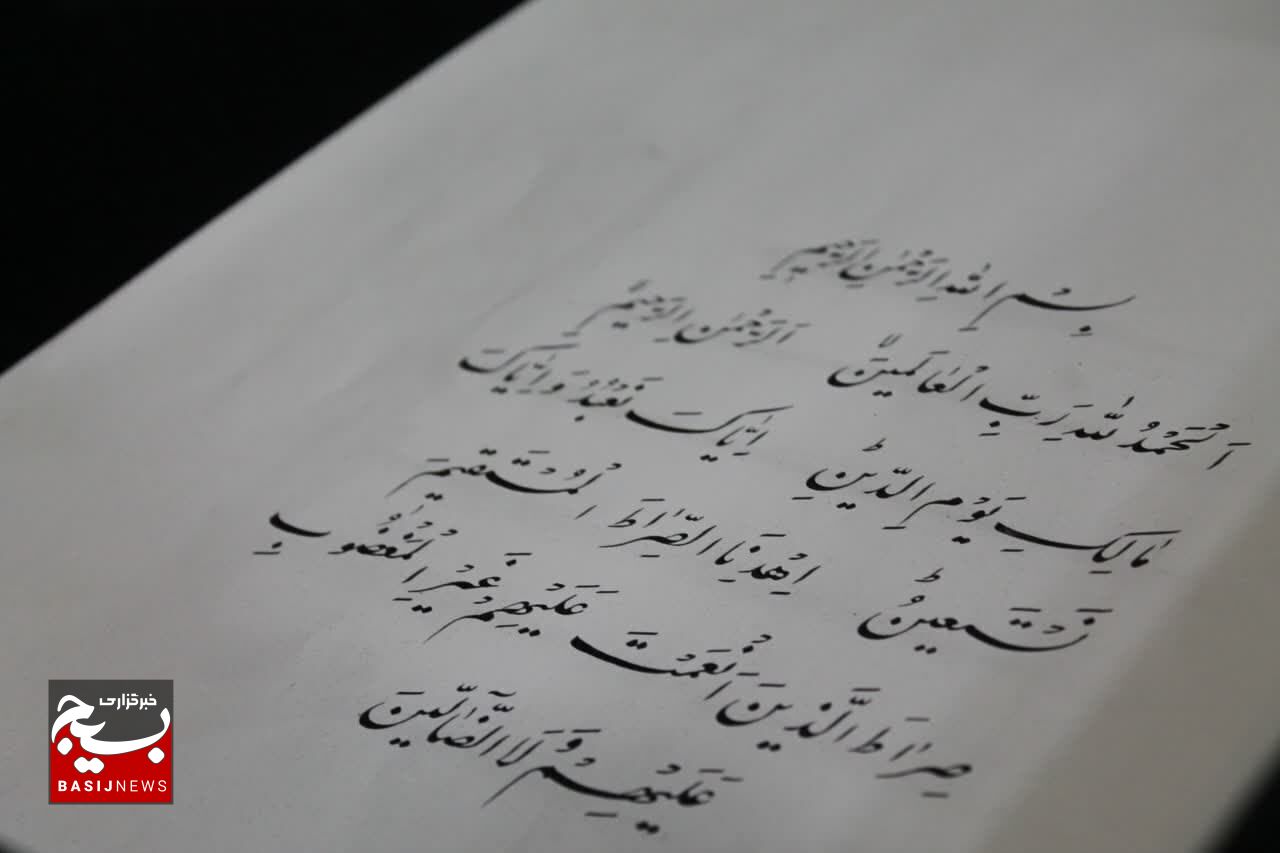 بِسْمِ اللّٰهِ الرَّحْمٰنِ الرَّحِیْمِ
اَلْحَمْدُ لِلّٰهِ رَبِّ الْعٰالَمِیْنَ اَلرَّحْمٰنِ الرَّحِیْمِ
مٰالِکِ یَوْمِ الدِّیْنِ اِیّٰاکَ نَعْبُدُ وَ اِیّٰاکَ
نَسْتَعِیْنُ اِهْدِنَا الصِّرٰاطَ الْمُسْتَقِیْمَ
صِرٰاطَ الَّذِیْنَ اَنْعَمْتَ عَلَیْهِمْ غَیْرِ الْمَغْضُوْبِ
عَلَیْهِمْ وَ لَا الضّٰآلِّیْنَ
خبرگزاری
بسیج
BASIJNEWS